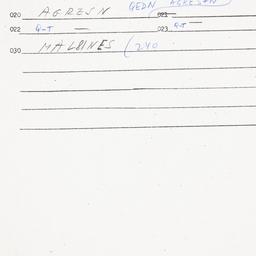 020 AGRESN QEDN (AGRESAN 021
022 Q-T — 023 Q-T —
030 MALBINES (240